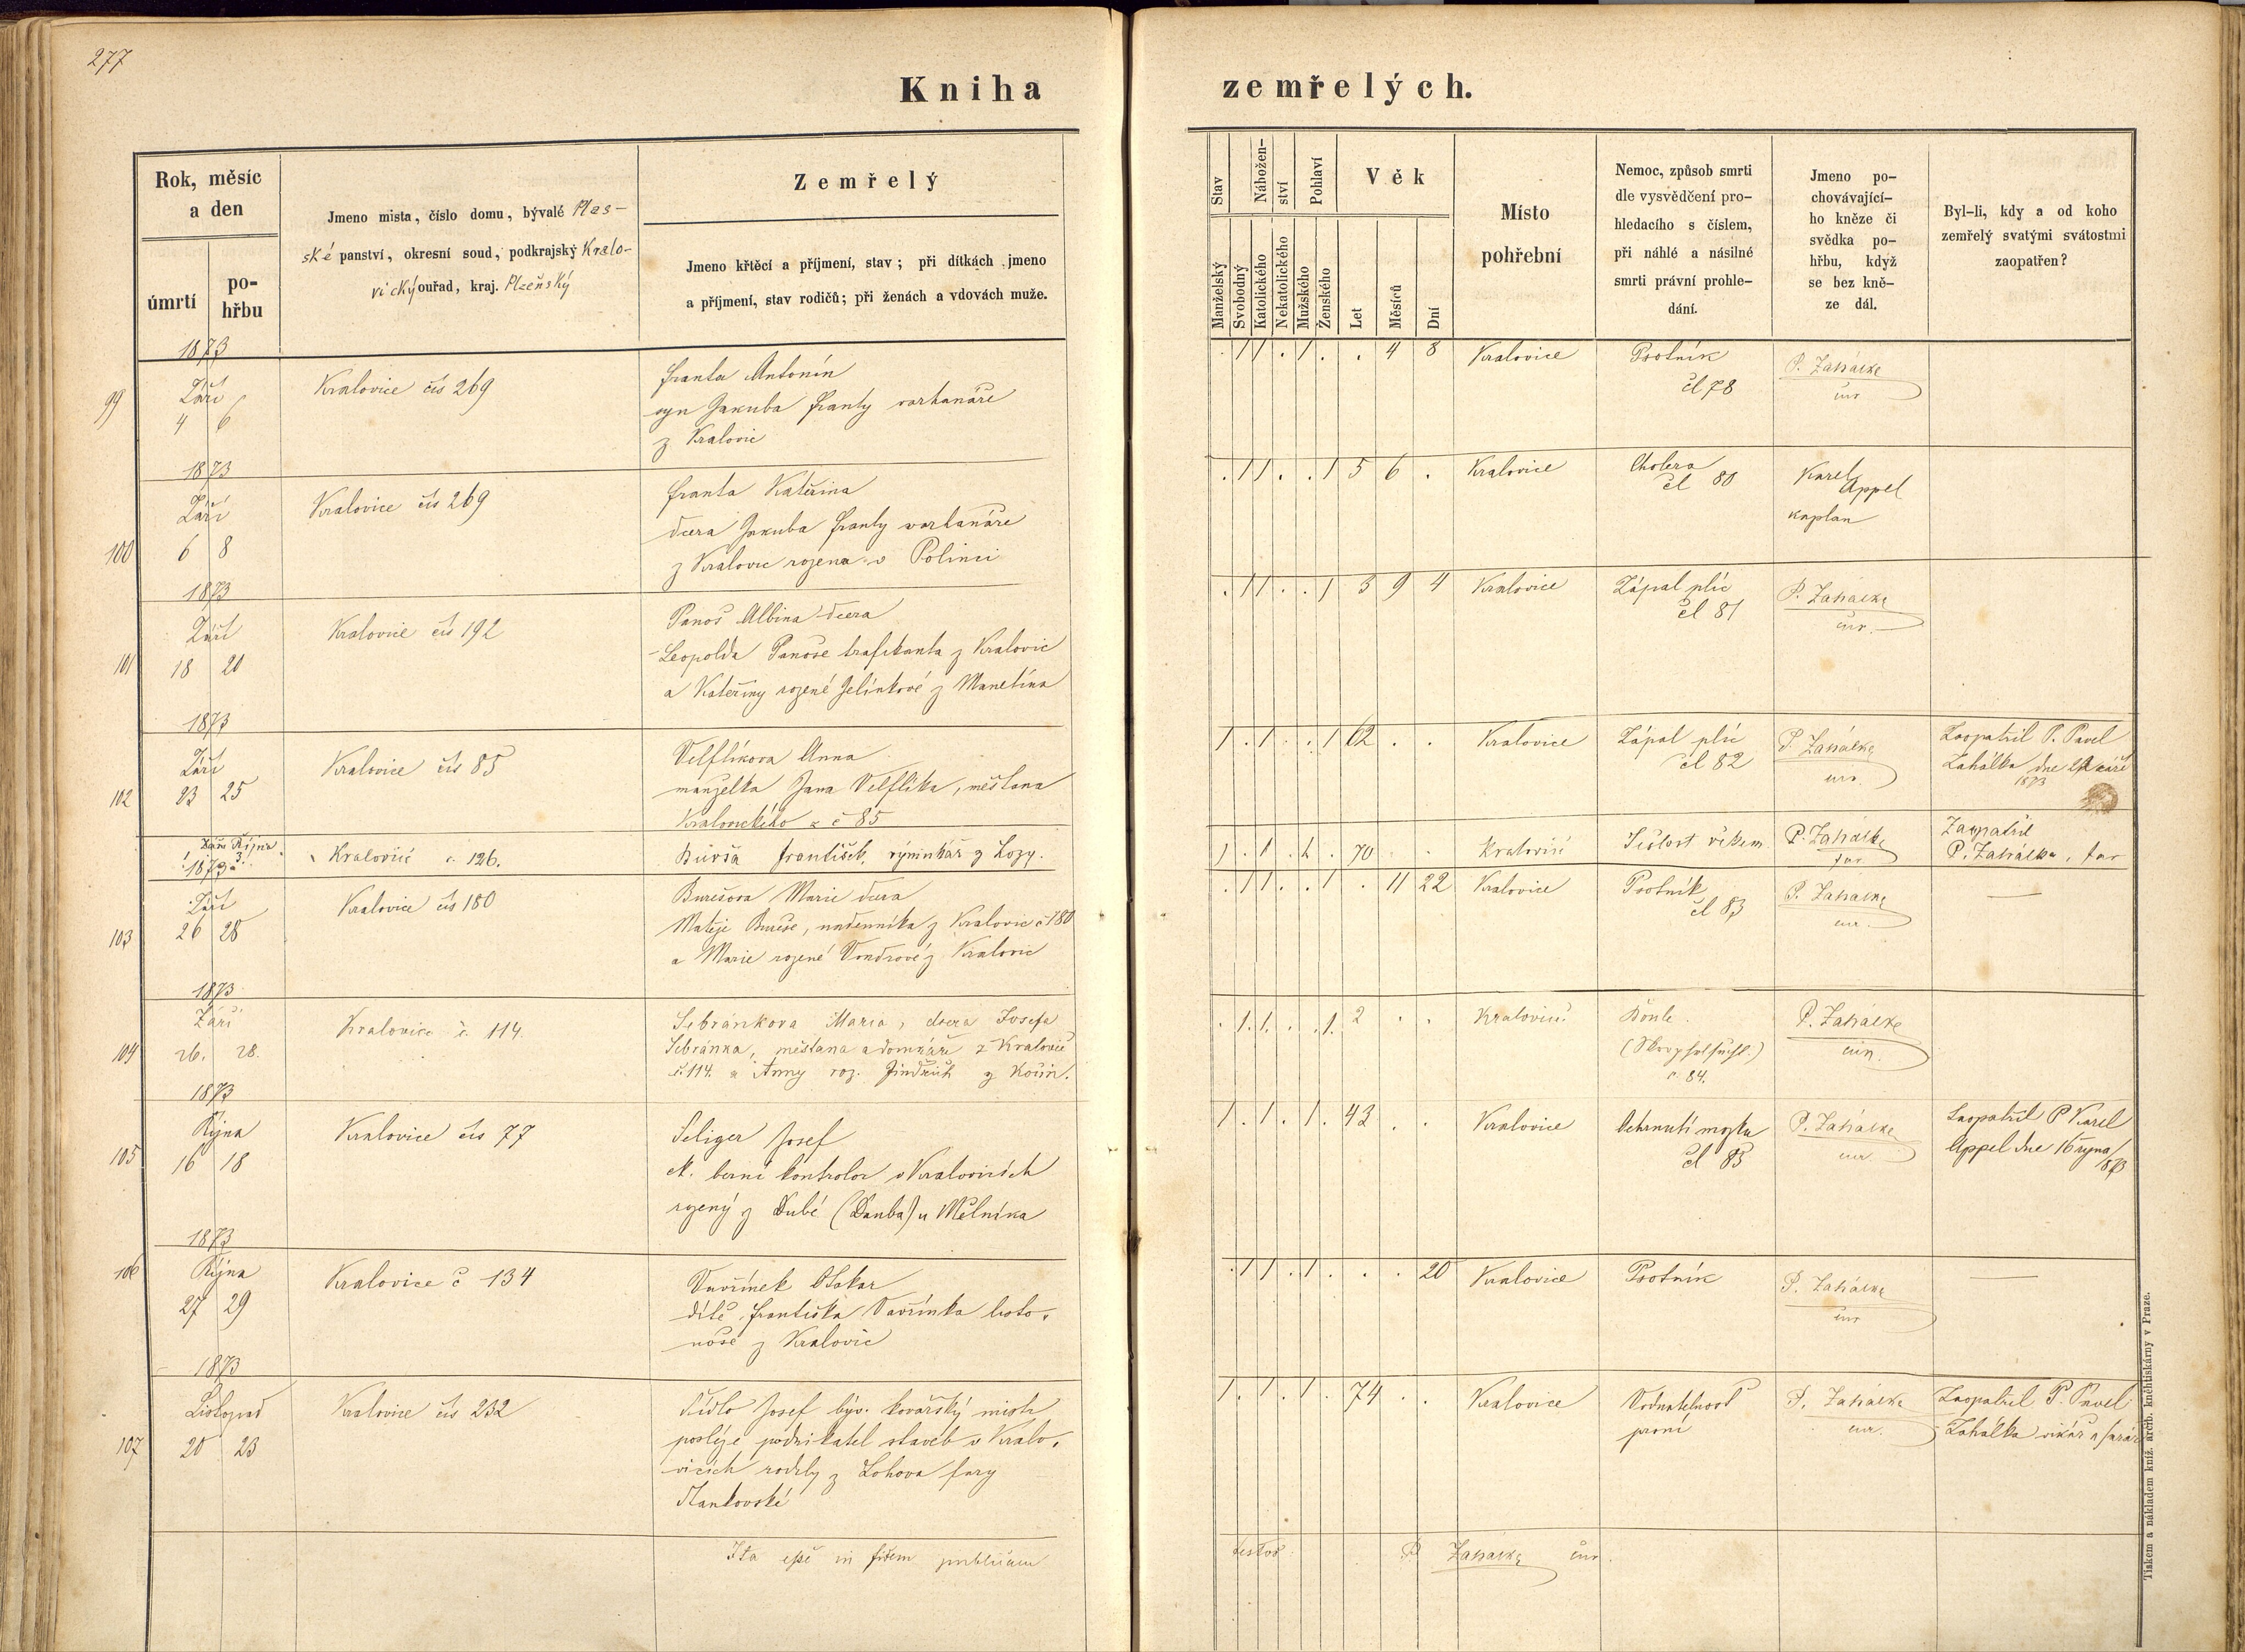 277
Kniha zemřelých.
Rok, měsíc
a den
úmrtí
po-
hřbu
Jmeno mista, číslo domu, bývalé Plas-
ské panství, okresní soud, podkrajský Kralo-
vický ouřad, kraj. Plzeňský
Zemřelý
Jmeno křtěcí a příjmení, stav; při dítkách jmeno
a příjmení, stav rodičů; při ženách a vdovách muže.
Stav
Nábožen-
ství
Pohlaví
Věk
Manželský
Svobodný
Katolického
Nekatolického
Mužského
Ženského
Let
Měsíců
Dní
Místo
pohřební
Nemoc, způsob smrti
dle vysvědčení pro-
hledacího s číslem,
při náhlé a násilné
smrti právní prohle-
dání.
Jmeno po-
chovávající-
ho kněze či
svědka po-
hřbu, když
se bez kně-
ze dál.
Byl-li, kdy a od koho
zemřelý svatými svátostmi
zaopatřen?
1873
99 Září 4 6
Kralovice čís 269
Franta Antonín
syn Jakuba Franty varhanáře
z Kralovic
. 1 1 . 1 . . 4 8 Kralovice
Psotník
čl 78
P. Zahálka
cur
1873
100 Září 6 8
Kralovice čís 269
Franta Kateřina
dcera Jakuba Franty varhanáře
z Kralovic rozena v Polinci
. 1 1 . . 1 5 6 . Kralovice
Cholera
čl 80
Karel
Appel
kaplan
1873
101 Září 18 20
Kralovice čís 192
Panoš Albina dcera
Leopolda Panoše trafikanta z Kralovic
a Kateřiny rozené Jelínkové z Manetína
. 1 1 . . 1 3 9 4 Kralovice
Zápal plic
čl 81
P. Zahálka
cur.
1873
102 Září 23 25
Kralovice čís 85
Velflíkova Anna
manželka Jana Velflíka, měšťana
Kralovického z č 85
1 . 1 . . 1 62 . . Kralovice
Zápal plic
čl 82
P. Zahálka
cur.
Zaopatřil P. Pavel
Zahálka dne 21 září
1873
Září Října
1. 3.
1873
Kralovic č. 126.
Bůrša František, rýminkář z Lozy.
1 . 1 . 1 . 70 . . Kralovic
Sešlost věkem
P. Zahálka
far
Zaopatřil
P. Zahálka, far
103 Září 26 28
Kralovice čís 180
Burešova Marie dcera
Matěje Bureše, nadenníka z Kralovic č 180
a Marie rozené Vondrové z Kralovic
. 1 1 . . 1 . 11 22 Kralovice
Psotník
čl 83
P. Zahálka
cur.
1873
104 Září 26. 28.
Kralovice č. 114.
Sebránkova Maria, dcera Josefa
Sebránka, měšťana a domkáře z Kralovic
č. 114. a Anny roz. Jindřich z Kočín.
. 1. 1. . . 1. 2 . . Kralovici
č. 84.
P. Zahálka
cur.
1873
105 Října 16 18
Kralovice čís 77
Seliger Josef
berní kontrolor v Kralovicích
rozený z Dubé (Dauba) u Mělníka
1. 1. 1. 43 . . Kralovice
Ochrnutí mozku
čl 85
P. Zahálka
cur
Zaopatřil P Karel
Appel dne 16 rijna
1873
1873
106 Října 27 29
Kralovice č 134
Vavřínek Otakar
dítě Františka Vavřínka listo-
noše z Kralovic
. 1 1 . 1 . . . 20 Kralovice
Psotník
P. Zahálka
cur
1873
107 Listopad 20 23
Kralovice čís 232
Sidlo Josef býv. kovářský mistr
posléze podnikatel staveb v Kralo-
vicích rodilý z Lohova fary
Stankovské
1. 1. 1 . 74 . . Kralovice
Vodnatelnost
prsní
P. Zahálka
cur.
Zaopatřil P. Pavel
Zahálka vikář a farář
Ita esse in fidem publicam
testor P Zahálka cur.
Tiskem a nákladem kníž. arcib. knihtiskárny v Praze.